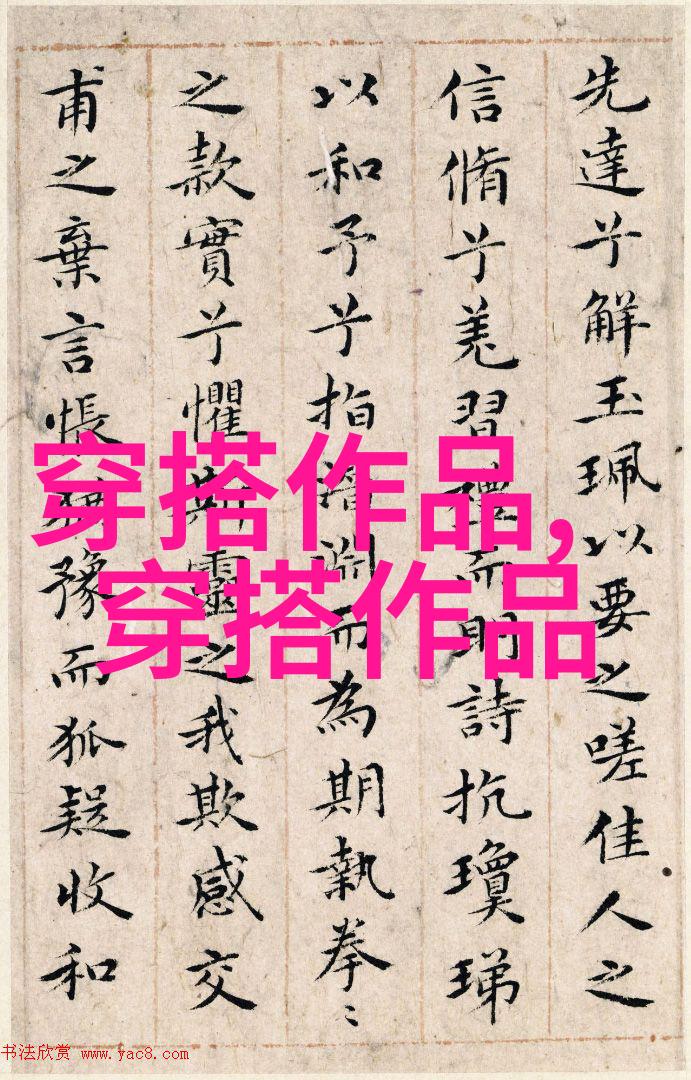 先達兮解玉珮以要之嗟佳人之
信脩兮羌習禮而明詩抗瓊珶
以和予兮指潛淵而為期執拳〻
之款實兮懼斯靈之我欺感交
甫之棄言悵猶豫而狐疑收和
穿搭作品,
穿搭作品
书法欣赏 www.yac8.com